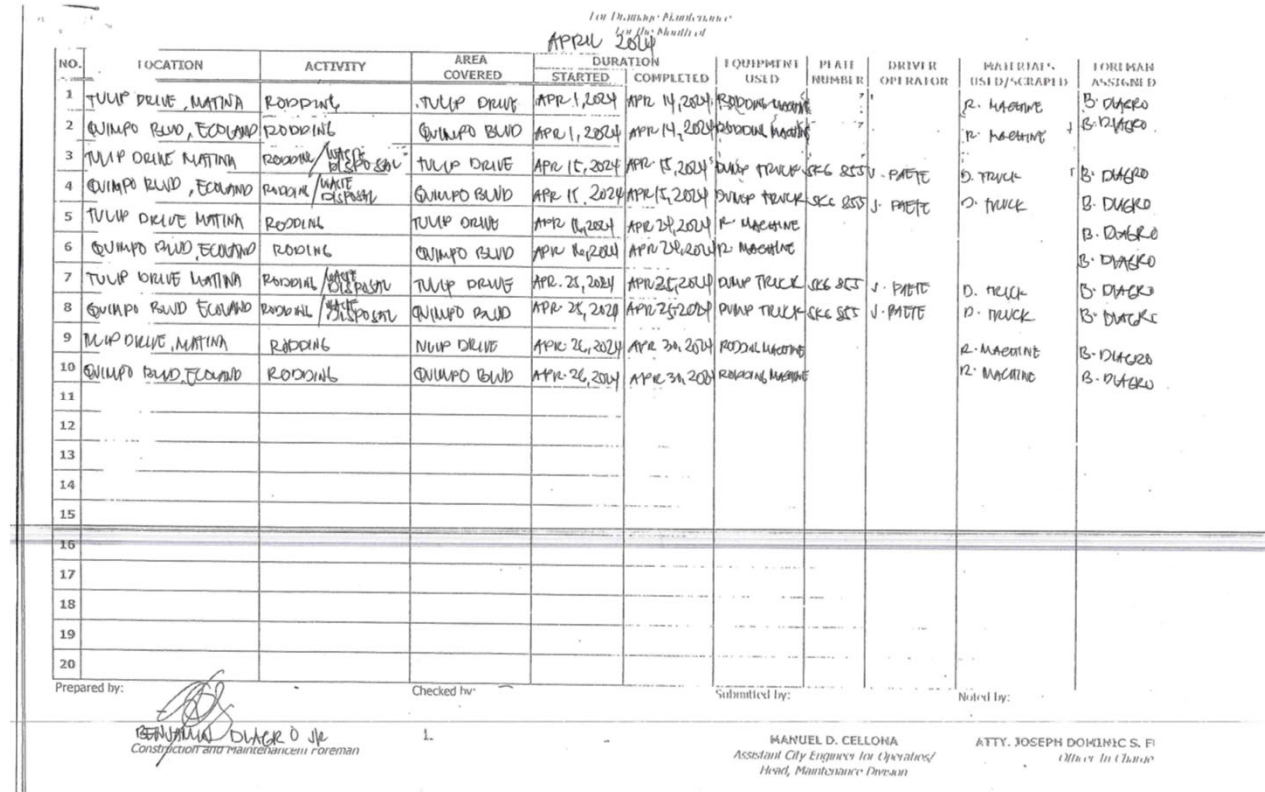 For Drainage Maintenance
For the Month of
APRIL 2024
NO. LOCATION ACTIVITY AREA COVERED DURATION STARTED COMPLETED EQUIPMENT USED PLATE NUMBER DRIVER OPERATOR MATERIALS USED/SCRAPED FOREMAN ASSIGNED
1 TULIP DRIVE, MATINA RODDING TULIP DRIVE APR 1, 2024 APR 14, 2024 RODDING MACHINE R. MACHINE B. DIAGRO
2 QUIMPO BLVD, ECOLAND RODDING QUIMPO BLVD APR 1, 2024 APR 14, 2024 RODDING MACHINE R. MACHINE B. DIAGRO
3 TULIP DRIVE MATINA RODDING/WASTE DISPOSAL TULIP DRIVE APR 15, 2024 APR 15, 2024 DUMP TRUCK SKG 855 J. PAETE D. TRUCK B. DIAGRO
4 QUIMPO BLVD, ECOLAND RODDING/WASTE DISPOSAL QUIMPO BLVD APR 15, 2024 APR 15, 2024 DUMP TRUCK SKG 855 J. PAETE D. TRUCK B. DIAGRO
5 TULIP DRIVE MATINA RODDING TULIP DRIVE APR 16, 2024 APR 24, 2024 R. MACHINE B. DIAGRO
6 QUIMPO BLVD, ECOLAND RODDING QUIMPO BLVD APR 16, 2024 APR 24, 2024 R. MACHINE B. DIAGRO
7 TULIP DRIVE MATINA RODDING/WASTE DISPOSAL TULIP DRIVE APR. 25, 2024 APR 25, 2024 DUMP TRUCK SKG 855 J. PAETE D. TRUCK B. DIAGRO
8 QUIMPO BLVD ECOLAND RODDING/WASTE DISPOSAL QUIMPO BLVD APR. 25, 2024 APR 25 2024 DUMP TRUCK SKG 855 J. PAETE D. TRUCK B. DIAGRO
9 TULIP DRIVE, MATINA RODDING TULIP DRIVE APR. 26, 2024 APR 30, 2024 RODDING MACHINE R. MACHINE B. DIAGRO
10 QUIMPO BLVD, ECOLAND RODDING QUIMPO BLVD APR. 26, 2024 APR 30, 2024 RODDING MACHINE R. MACHINE B. DIAGRO
11
12
13
14
15
16
17
18
19
20
Prepared by: Checked by: Submitted by: Noted by:
BENJAMIN DIAGRO JR 1. MANUEL D. CELLONA ATTY. JOSEPH DOMINIC S.
Construction and Maintenancem Foreman Assistant City Engineer for Operations/ Officer In Charge
Head, Maintenance Division